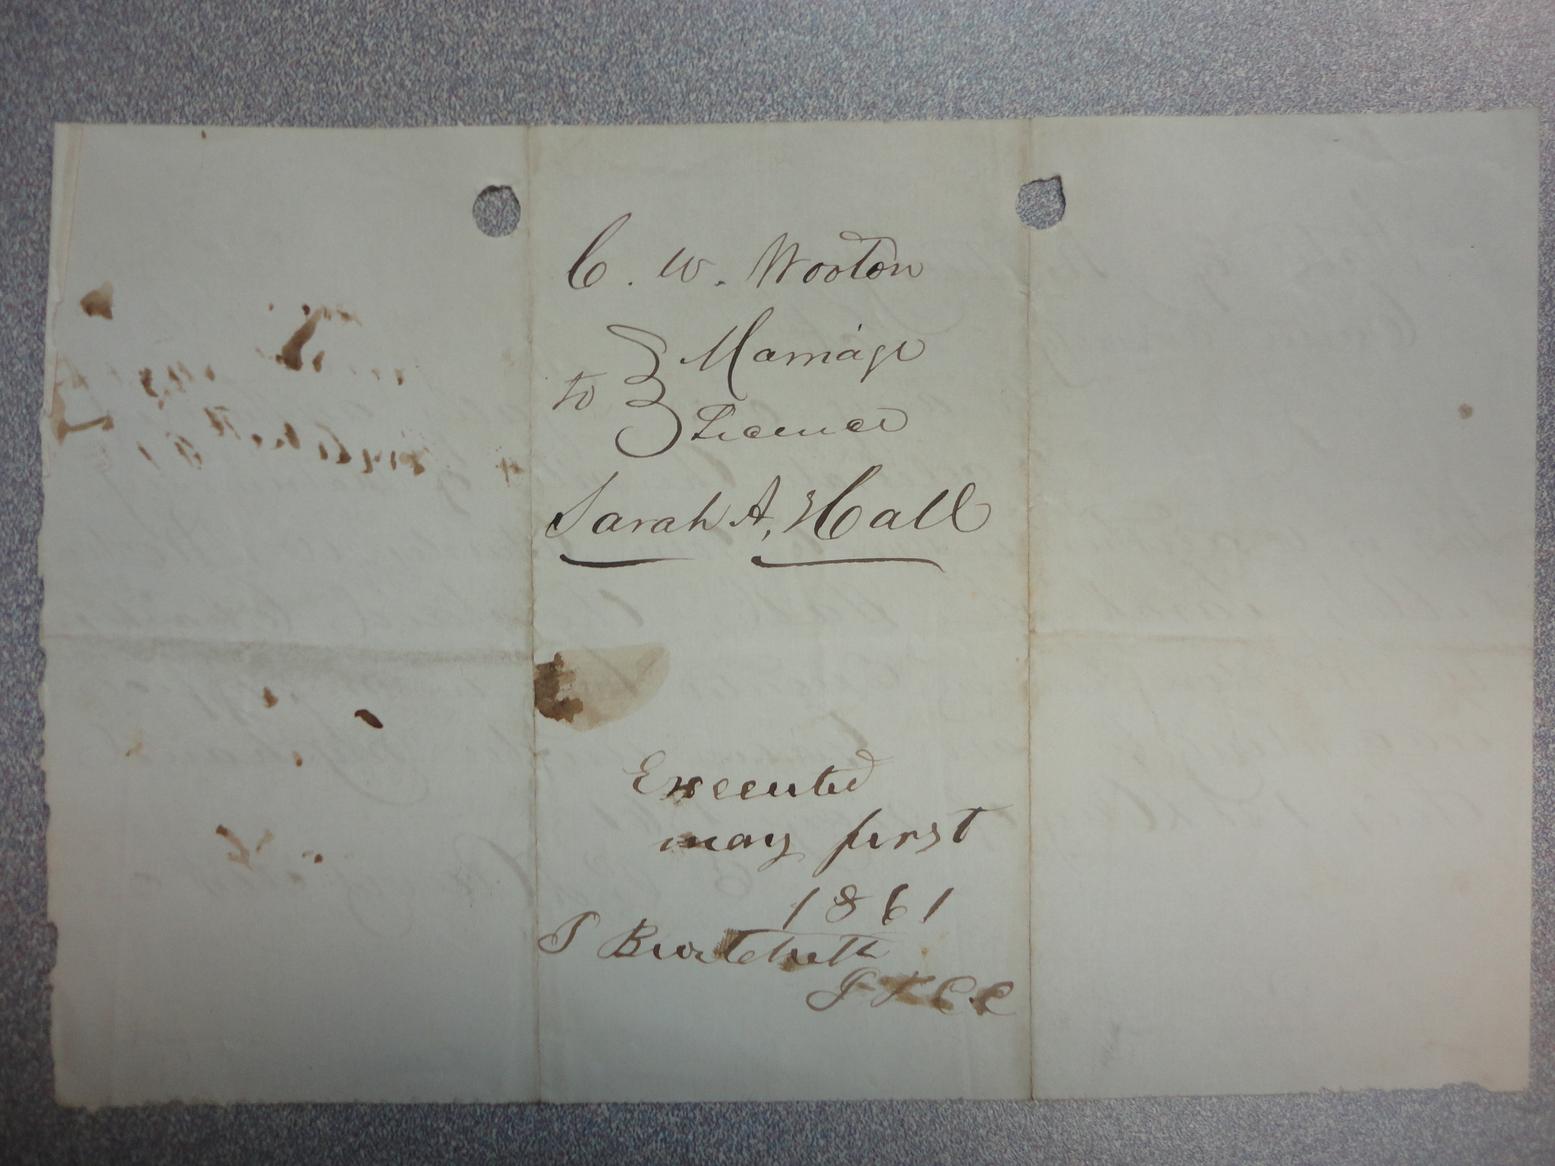 C. W. Wooton
to } Marriage
Licence
Sarah A, Hall
Executed
may first
1861
J P C C